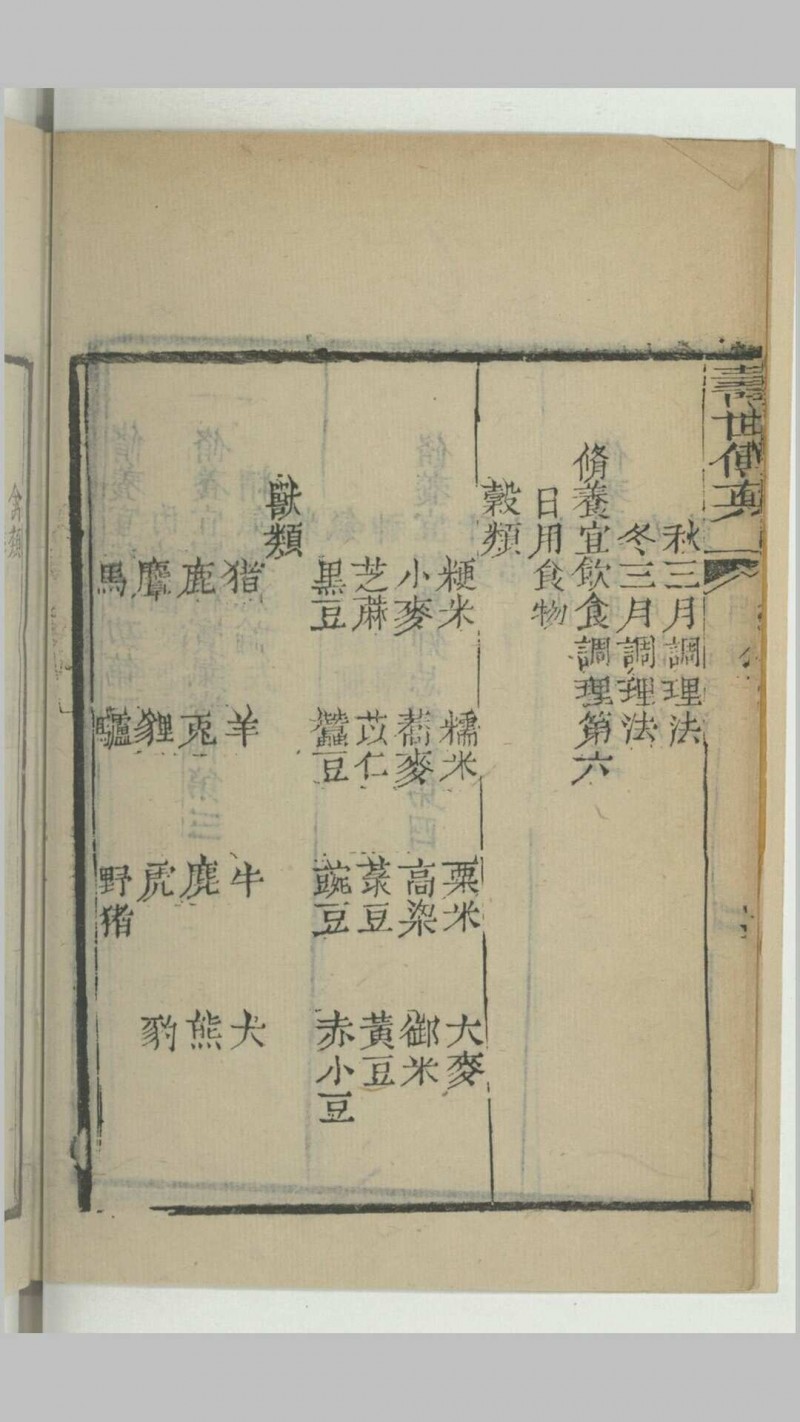 壽世傳真
秋三月調理法
冬三月調理法
脩養宜飲食調理第六
日用食物
穀類
粳米 糯米 粟米 大麥
小麥 蕎麥 高粱 御米
芝蔴 苡仁 菉豆 黃豆
黑豆 蠶豆 豌豆 赤小豆
獸類
猪 羊 牛 犬
鹿 兎 麂 熊
麞 貍 虎 豹
馬 驢 野猪
禽類